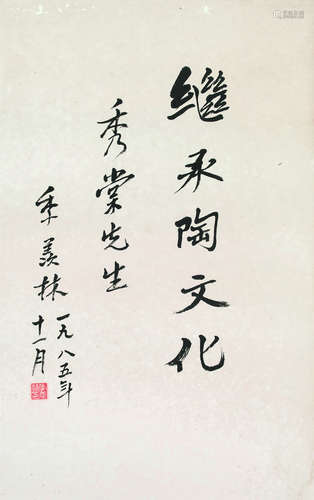 继承陶文化
秀棠先生
季羡林
一九八五年
十一月